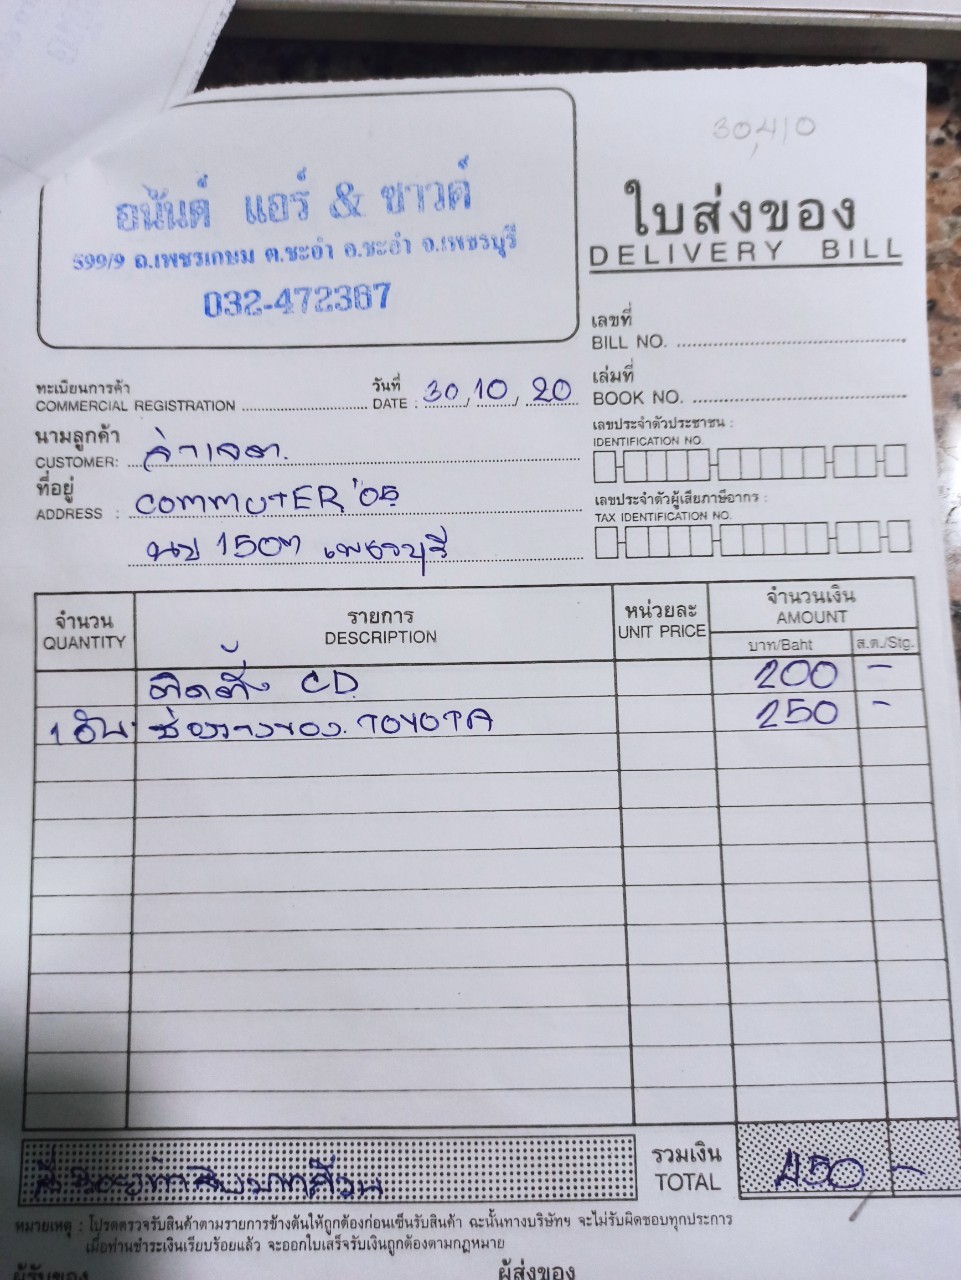 30,410
อนันต์ แอร์ & ซาวด์
599/9 ถ.เพชรเกษม ต.ชะอำ อ.ชะอำ จ.เพชรบุรี
032-472367
ใบส่งของ
DELIVERY BILL
เลขที่
BILL NO.
ทะเบียนการค้า
COMMERCIAL REGISTRATION
วันที่
DATE : 30, 10, 20
เล่มที่
BOOK NO.
นามลูกค้า
CUSTOMER:
เลขประจำตัวประชาชน :
IDENTIFICATION NO.
ที่อยู่
ADDRESS : COMMUTER '05
เลขประจำตัวผู้เสียภาษีอากร :
TAX IDENTIFICATION NO.
นข 1507 เพชรบุรี
จำนวน
QUANTITY
รายการ
DESCRIPTION
หน่วยละ
UNIT PRICE
จำนวนเงิน
AMOUNT
บาท/Baht
ส.ต./Stg.
ติดตั้ง CD 200 -
1 อัน ช่องวางของ TOYOTA 250 -
สี่ร้อยห้าสิบบาทถ้วน
รวมเงิน
TOTAL
450 -
หมายเหตุ : โปรดตรวจรับสินค้าตามรายการข้างต้นให้ถูกต้องก่อนเซ็นรับสินค้า ฉะนั้นทางบริษัทฯ จะไม่รับผิดชอบทุกประการ
เมื่อท่านชำระเงินเรียบร้อยแล้ว จะออกใบเสร็จรับเงินถูกต้องตามกฎหมาย
ผู้รับของ
ผู้ส่งของ